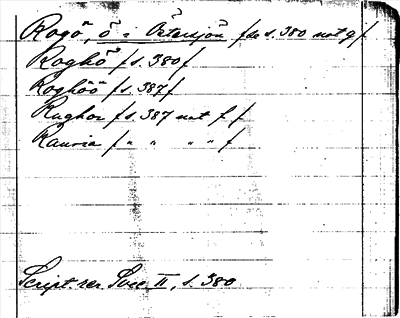 Rogö, ö i Östersjön f s. 380 not g f
Roghö f s. 380 f
Roghöö f s. 387 f
Rughor f s. 387 not f f
Rauria f " " " " f
Script. rer Svec II, s. 380